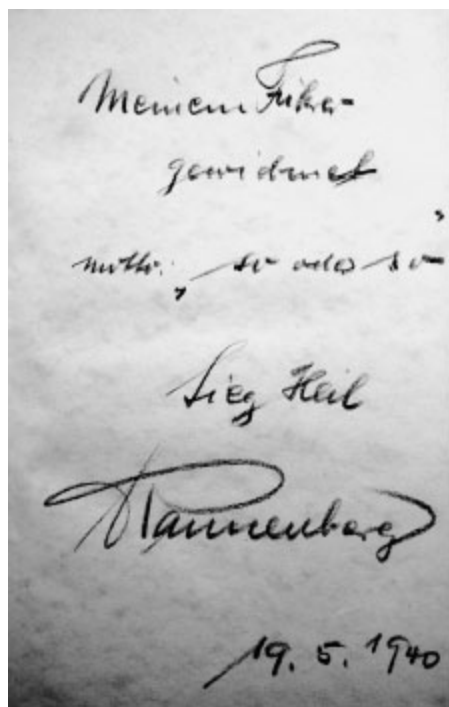 Meinem
gewidmet
motto: „so oder so"
Sieg Heil
Tannenberg
19. 5. 1940